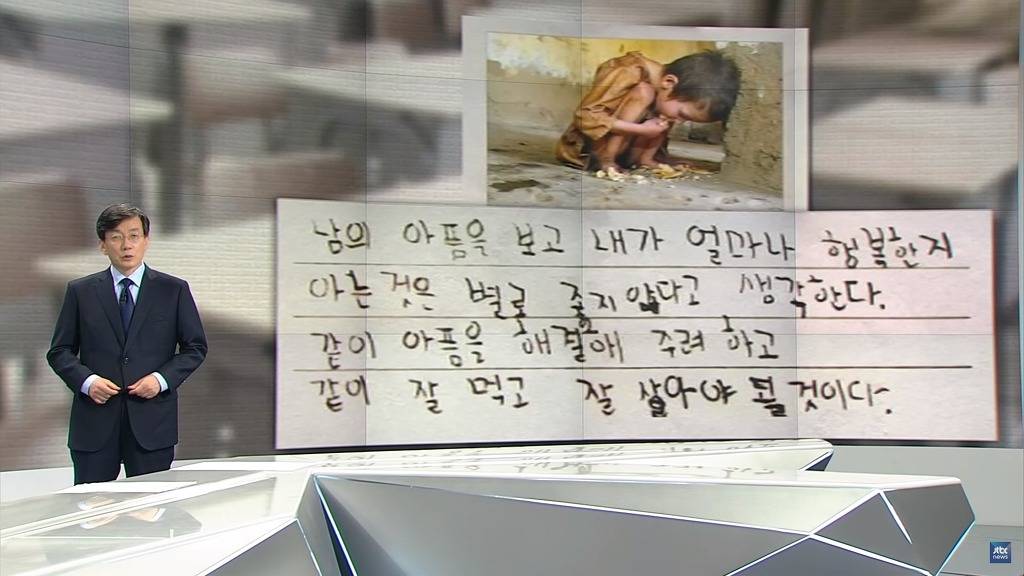 남의 아픔을 보고 내가 얼마나 행복한지
아는 것은 별로 좋지 않다고 생각한다.
같이 아픔을 해결해 주려 하고
같이 잘 먹고 잘 살아야 될 것이다.
jtbc
news